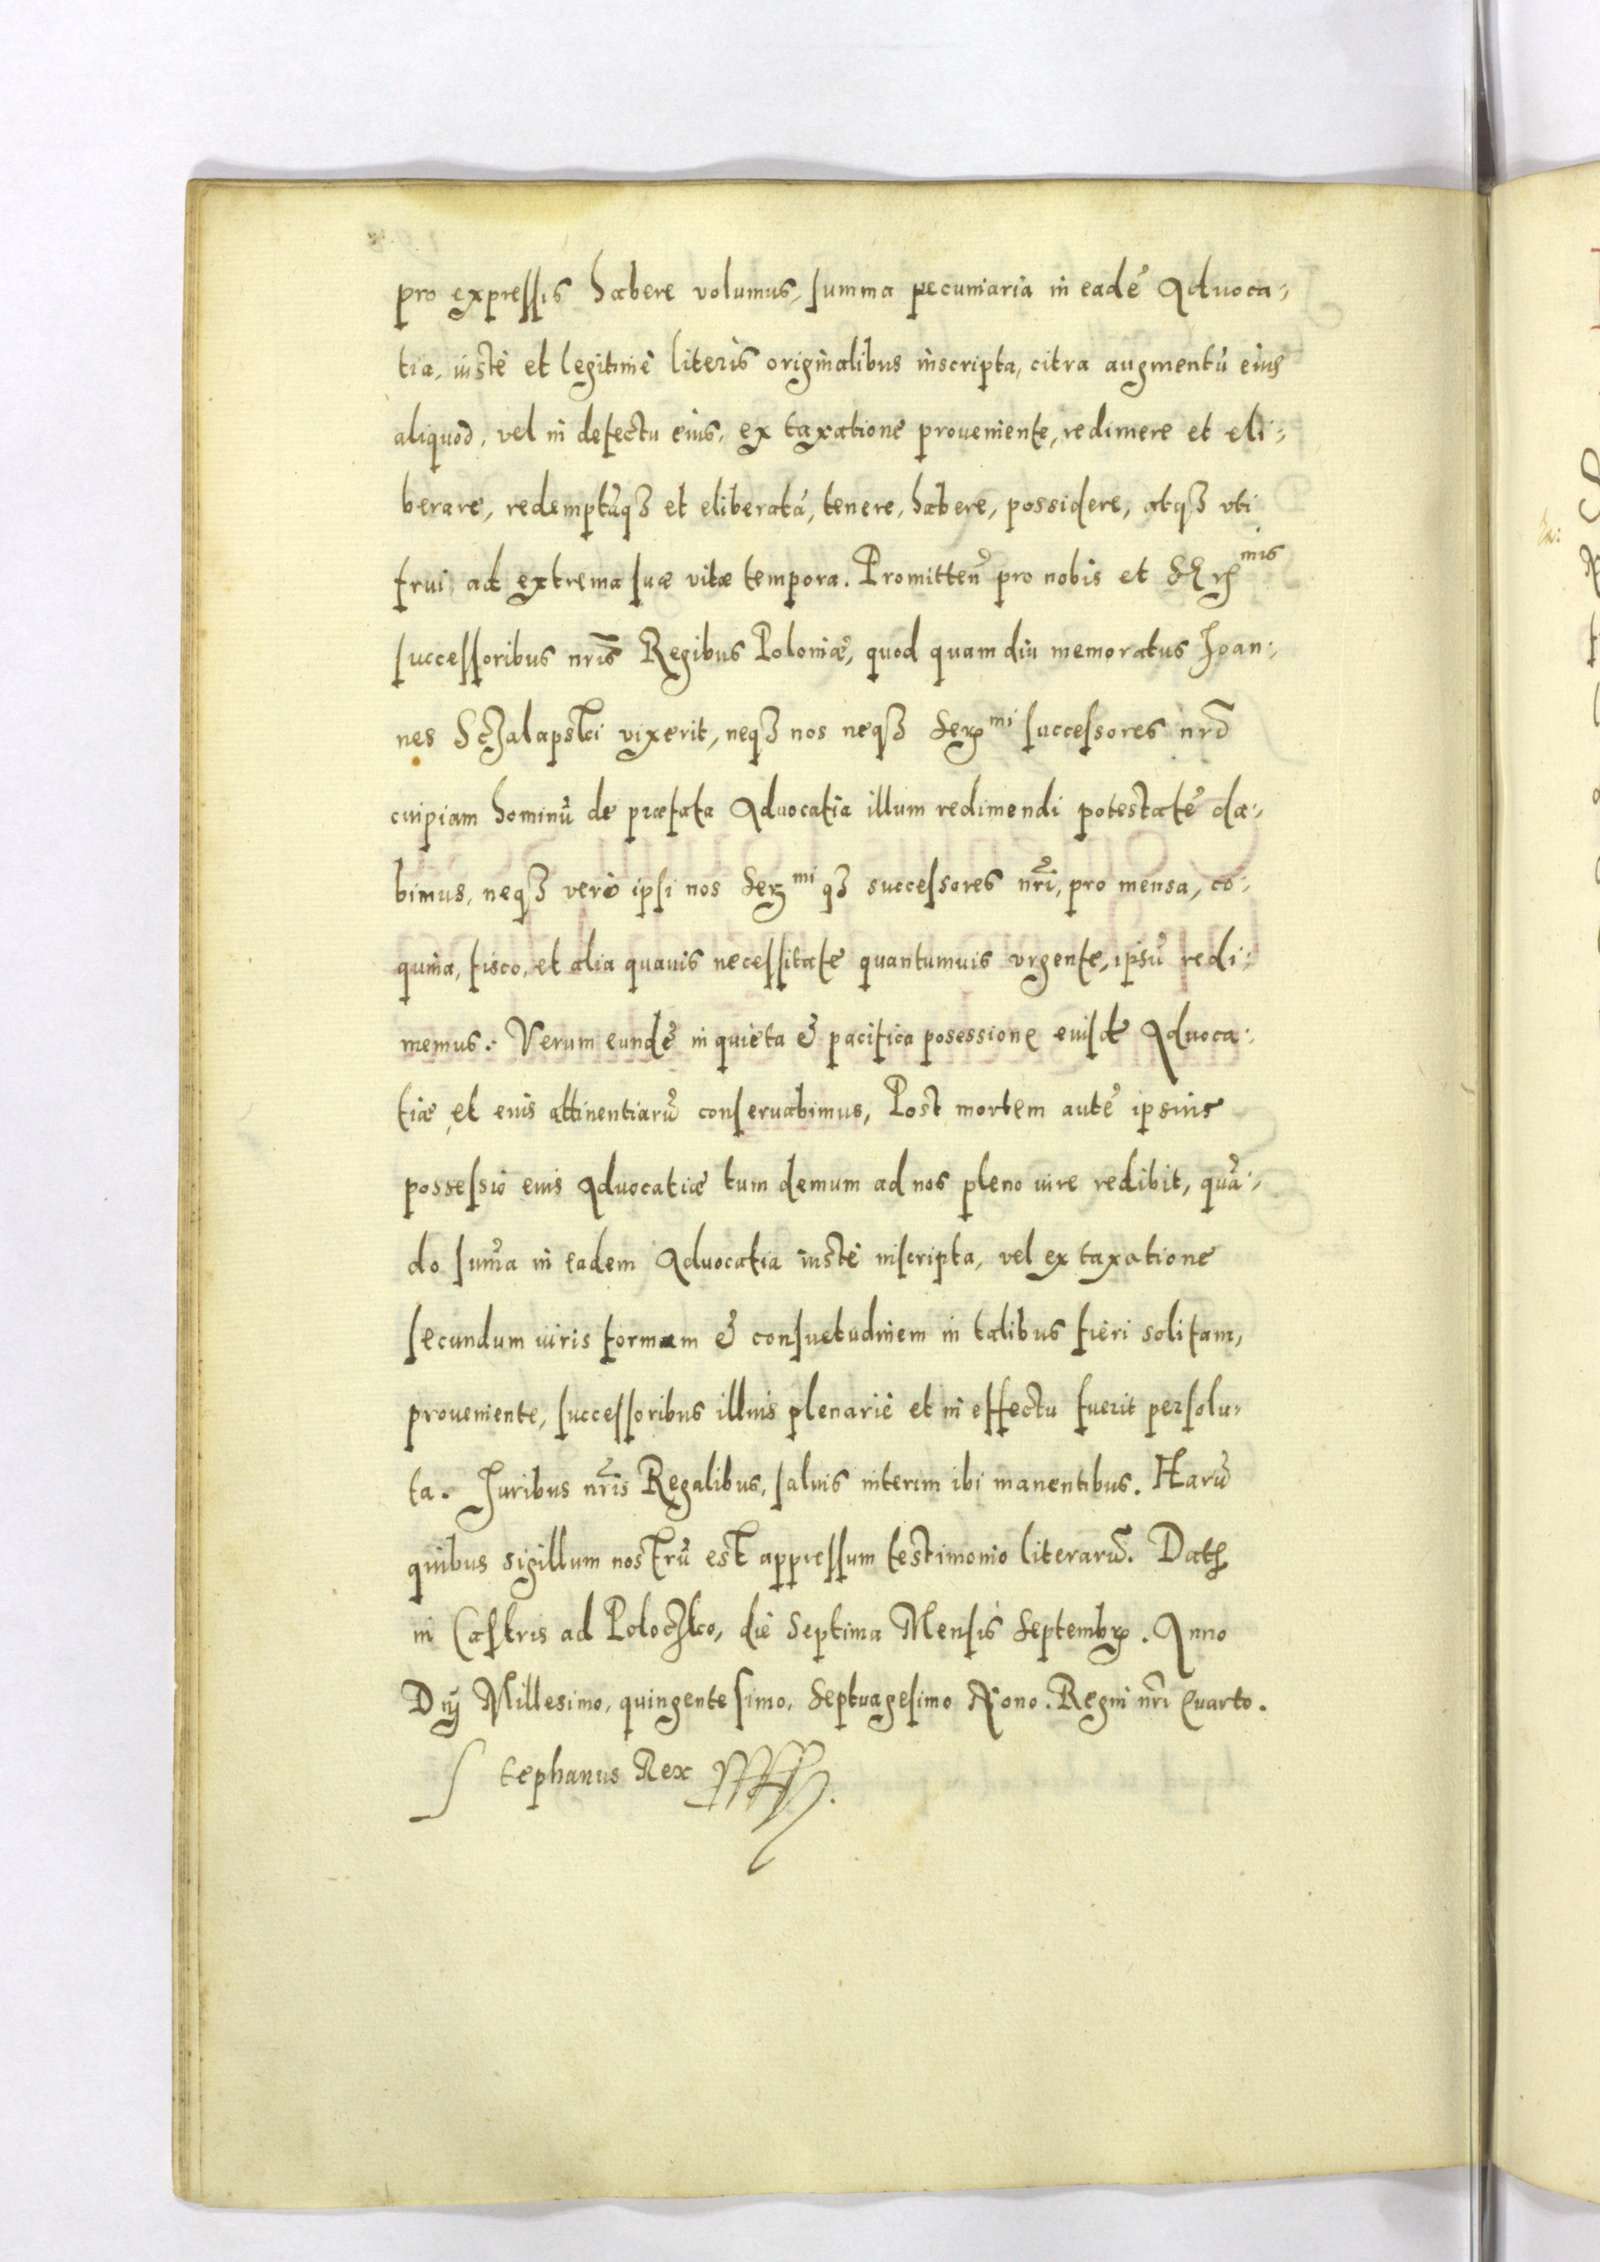 pro expressis habere volumus, summa pecuniaria in eadē Aduoca-
tia, iustè et legitimè literis originalibus inscripta, citra augmentū eius
aliquod, vel in defectu eius, ex taxatione proueniente, redimere et eli-
berare, redemptāq3 et eliberatā, tenere, habere, possidere, atq3 vti
frui, ad extrema suæ vitæ tempora. Promitteñ pro nobis et
successoribus nr̄is Regibus Poloniæ, quod quam diu memoratus Ioan-
nes Sczalapski vixerit, neq3 nos neq3 Ser^mi successores nr̄i
cuipiam hominū de præfata Aduocatia illum redimendi potestatē da-
bimus, neq3 verò ipsi nos Ser^mi q3 successores nr̄i, pro mensa, co-
quina, fisco, et alia quauis necessitate quantumuis vrgente, ipsū redi-
memus. Verum eundē in quieta & pacifica posessione eiusdē Aduoca-
tiæ, et eius attinentiarū conseruabimus, Post mortem autē ipsius
possessio eius Aduocatiæ tum demum ad nos pleno iure redibit, quā-
do sum̄a in eadem Aduocatia iustè inscripta, vel ex taxatione
secundum iuris formam & consuetudinem in talibus fieri solitam,
proueniente, successoribus illius plenariè et in effectu fuerit persolu-
ta. Juribus nr̄is Regalibus, saluis interim ibi manentibus. Harū
quibus sigillum nostrū est appressum testimonio literarū. Dat
in Castris ad Poloczko, die Septima Mensis Septembr. Anno
Dnj Millesimo, quingentesimo, Septuagesimo Nono. Regni nr̄i Quarto.
Stephanus Rex